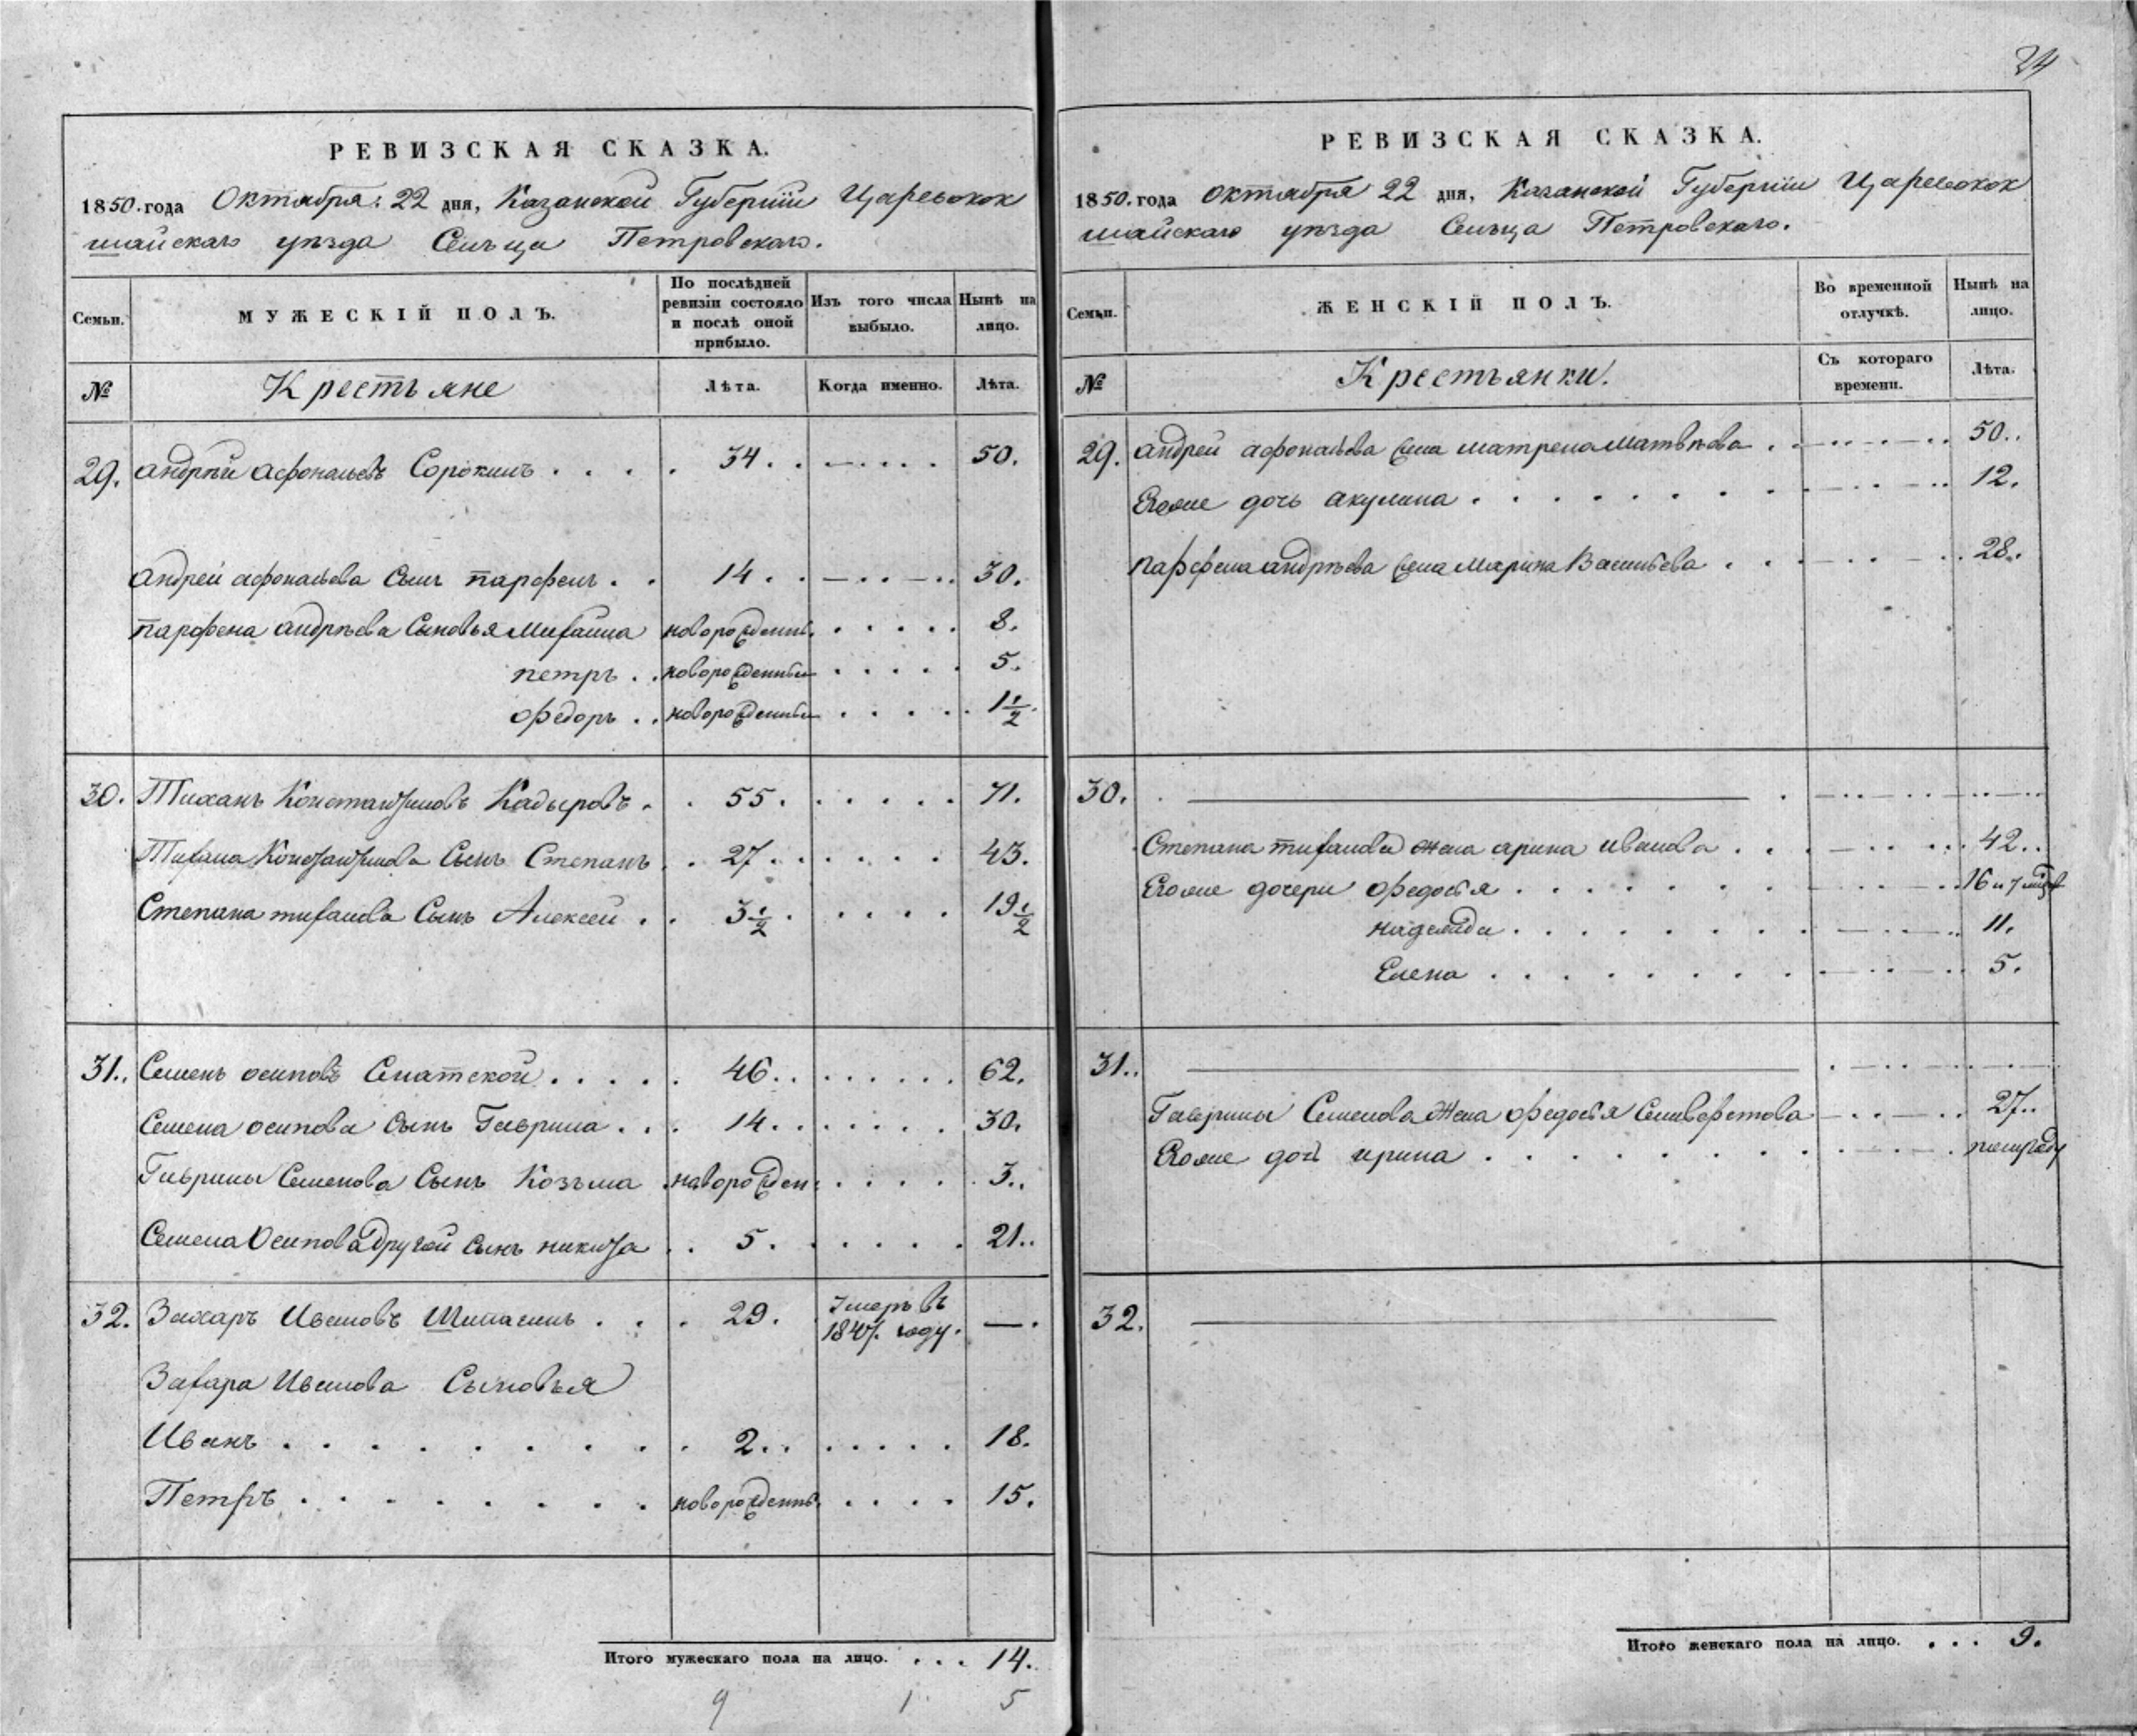 24
РЕВИЗСКАЯ СКАЗКА.
1850. года Октября. 22 дня, Казанской Губернiи Царевокок
шайскаго уѣзда Сельца Петровскаго.
Семьи.
МУЖЕСКІЙ ПОЛЪ.
По послѣдней ревизіи состояло и послѣ оной прибыло.
Изъ того числа выбыло.
Нынѣ на лицо.
№ Крестьяне Лѣта. Когда именно. Лѣта.
29. андрѣй афонасьевъ Сорокинъ 34. 50.
андрей афонасьева сынъ парфенъ 14. 30.
парфена андрѣева сыновья Михаила новорожденны 8.
петръ новорожденный 5.
федоръ новорожденный 1 1/2
30. Тиханъ Константиновъ Кадыровъ 55. 71.
Тихана Константинова Сынъ Степанъ 27. 43.
Степана тиханова Сынъ Алексей 3 1/2 19 1/2
31. Семенъ осиповъ 46. 62.
Семена осипова сынъ Гаврила 14. 30.
Гаврилы Семенова Сынъ Козьма новорожден 3.
Семена Осипова другой сынъ никита 5. 21.
32. Захаръ Ивановъ 29. Умеръ въ 1847. году. —
Захара Иванова Сыновья
Иванъ 2. 18.
Петръ новорожденны 15.
Итого мужескаго пола на лицо. 14.
9 1 5
РЕВИЗСКАЯ СКАЗКА.
1850. года Октября 22 дня, Казанской Губернiи Царевокок
шайскаго уѣзда Сельца Петровскаго.
Семьи.
ЖЕНСКІЙ ПОЛЪ.
Во временной отлучкѣ.
Нынѣ на лицо.
№ Крестьянки. Съ котораго времени. Лѣта.
29. андрей афонасьева жена матрена матвѣева 50.
Егоже дочь акулина 12.
парфена андрѣева жена Марина Васильева 28.
30.
Степана тиханова жена арина иванова 42.
Егоже дочери федосья 16 и 7
надежда 11.
Елена 5.
31.
Гаврилы Семенова жена федосья Селиверстова 27.
Егоже дочь ирина
32.
Итого женскаго пола на лицо. 9.